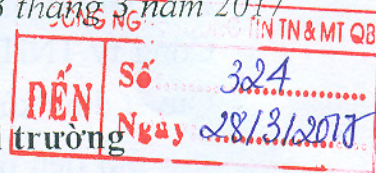 tháng 3 năm 2017
TIN TN & MT QB
ĐẾN
Số 324
Ngày 28/3/2017
trường